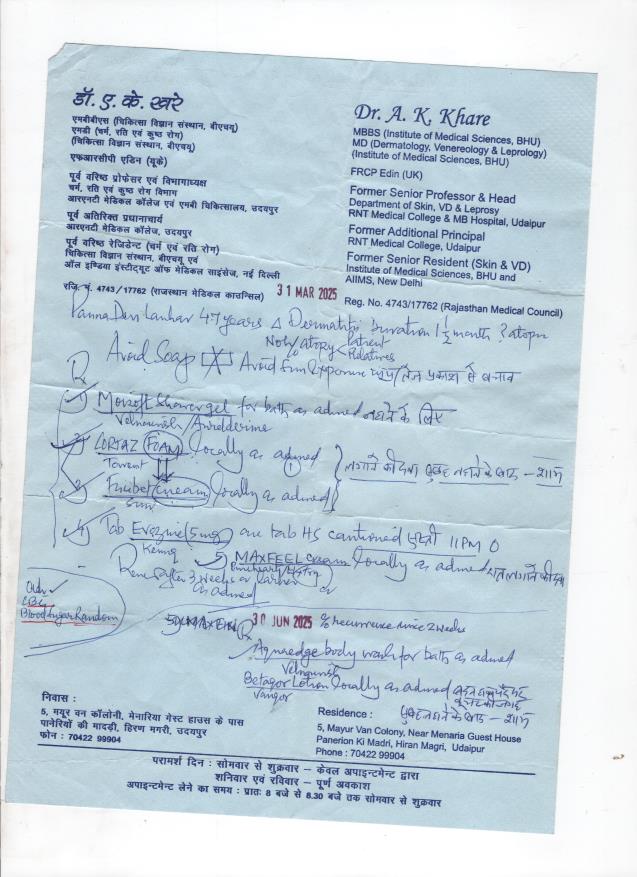 डॉ. ए. के. खरे
एमबीबीएस (चिकित्सा विज्ञान संस्थान, बीएचयू)
एमडी (चर्म, रति एवं कुष्ठ रोग)
(चिकित्सा विज्ञान संस्थान, बीएचयू)
एफआरसीपी एडिन (यूके)
पूर्व वरिष्ठ प्रोफेसर एवं विभागाध्यक्ष
चर्म, रति एवं कुष्ठ रोग विभाग
आरएनटी मेडिकल कॉलेज एवं एमबी चिकित्सालय, उदयपुर
पूर्व अतिरिक्त प्रधानाचार्य
आरएनटी मेडिकल कॉलेज, उदयपुर
पूर्व वरिष्ठ रेजिडेन्ट (चर्म एवं रति रोग)
चिकित्सा विज्ञान संस्थान, बीएचयू एवं
ऑल इण्डिया इंस्टीट्यूट ऑफ मेडिकल साइंसेज, नई दिल्ली
रजि. नं. 4743/17762 (राजस्थान मेडिकल काउन्सिल)
Dr. A. K. Khare
MBBS (Institute of Medical Sciences, BHU)
MD (Dermatology, Venereology & Leprology)
(Institute of Medical Sciences, BHU)
FRCP Edin (UK)
Former Senior Professor & Head
Department of Skin, VD & Leprosy
RNT Medical College & MB Hospital, Udaipur
Former Additional Principal
RNT Medical College, Udaipur
Former Senior Resident (Skin & VD)
Institute of Medical Sciences, BHU and
AIIMS, New Delhi
Reg. No. 4743/17762 (Rajasthan Medical Council)
31 MAR 2025
47 years Δ Dermatitis Duration 1½ month ? atopic
atopy Patient
Relatives
Avoid Soap Avoid Sun Exposure तेज प्रकाश से बचाव
Rx
1) Moisoft Shower gel for bath as advised नहाने के लिए
2) LORTAZ FOAM locally as advised
Torrent
3) cream locally as advised
Sun
लगाने की दवा सुबह नहाने के बाद - शाम
4) Tab (5mg) one tab HS cautioned 11 PM
5) MAXFEEL cream locally as advised
3 weeks or earlier
as advised
Adv
CBC
Blood Sugar Random
30 JUN 2025 recurrence since 2 weeks
Rx
body wash for bath as advised
Betagor Lotion locally as advised
सुबह नहाने के बाद - शाम
निवास :
5, मयूर वन कॉलोनी, मेनारिया गेस्ट हाउस के पास
पानेरियों की मादड़ी, हिरण मगरी, उदयपुर
फोन : 70422 99904
Residence :
5, Mayur Van Colony, Near Menaria Guest House
Panerion Ki Madri, Hiran Magri, Udaipur
Phone : 70422 99904
परामर्श दिन : सोमवार से शुक्रवार – केवल अपाइन्टमेन्ट द्वारा
शनिवार एवं रविवार – पूर्ण अवकाश
अपाइन्टमेन्ट लेने का समय : प्रातः 8 बजे से 8.30 बजे तक सोमवार से शुक्रवार